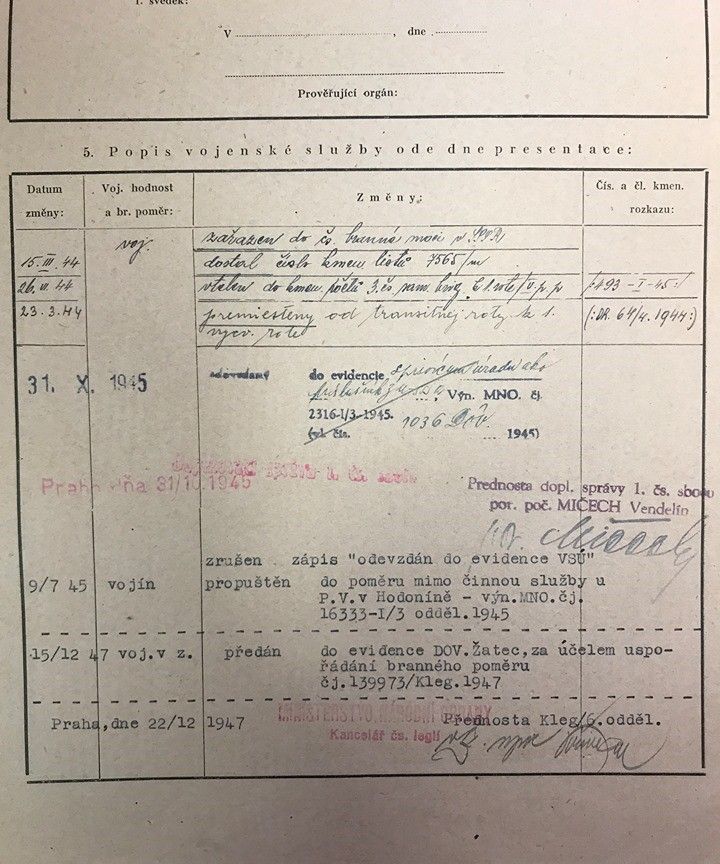 1. svědek:
V , dne
Prověřující orgán:
5. Popis vojenské služby ode dne presentace:
Datum změny:
Voj. hodnost a br. poměr:
Změny:
Čís. a čl. kmen. rozkazu:
voj.
zařazen do čs. branné moci v SSSR
15. III. 44 dostal číslo kmen. listu 7565/m
26. 44 vtělen do kmen. počtů 3. čs. sam. brig. /:493-I-45:/
23.3.44 premiestený od transitnej roty k 1. (:DR. 64/4. 1944:)
výcv. rote
31. X. 1945 odevzdaný do evidence úradu ako
Výn. MNO. čj.
2316-I/3-1945. 1036 Dův.
1945)
Praha dňa 31/10.1945
Prednosta dopl. správy 1. čs. sboru
por. poč. MIČECH Vendelín
zrušen zápis "odevzdán do evidence VSÚ"
9/7 45 vojín propuštěn do poměru mimo činnou službu u
P.V.v Hodoníně - výn.MNO.čj.
16333-I/3 odděl.1945
15/12 47 voj.v z. předán do evidence DOV.Žatec,za účelem uspo-
řádání branného poměru
čj.139973/Kleg.1947
MINISTERSTVO NÁRODNÍ OBRANY
Praha,dne 22/12 1947 Přednosta Kleg/6.odděl.
Kancelář čs. legií